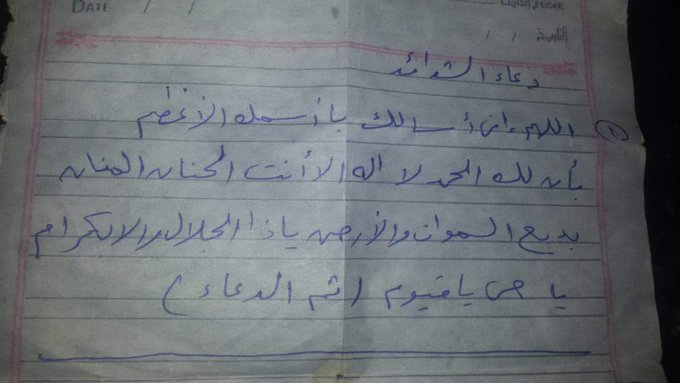 DATE / /
التاريخ / /
دعاء الشدائد
١ اللهم إنى أسالك بأسمك الأعظم
بأن لك الحمد لا اله الا أنت الحنان المنان
بديع السموات والأرض ياذا الجلال والاكرام
يا حى يا قيوم (ثم الدعاء)